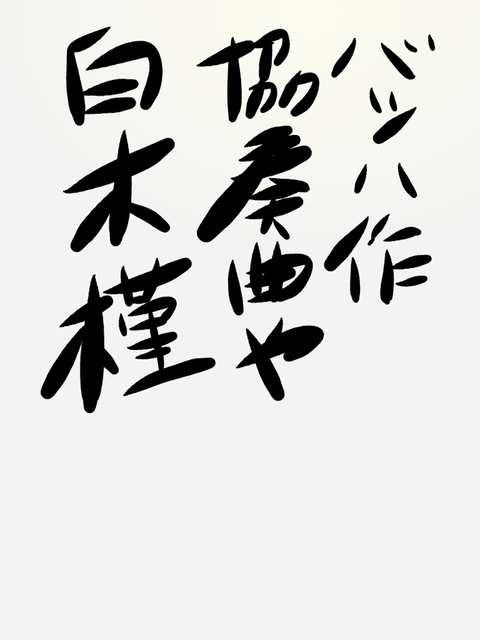 バッハ作
協奏曲や
白木槿